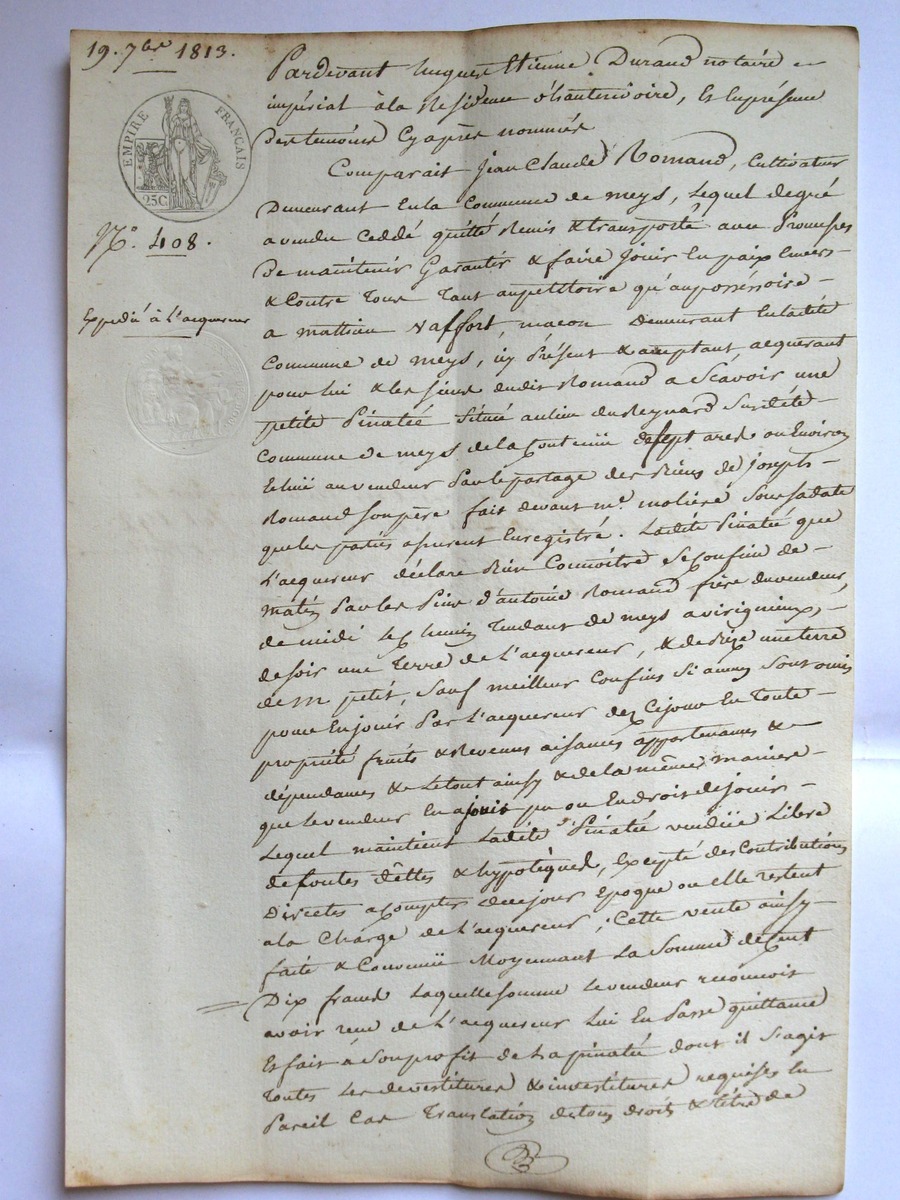 19. 7bre 1813.
EMPIRE FRANÇAIS
25C
N.o 408.
Expedié à L'acquereur
Pardevant hugues Etienne Durand notaire
impérial à la Residence d'hauterivoire, Et En présence
Des temoins Cy après nommés
Comparait Jean Claude Romand, Cultivateur
Demeurant En la Commune de meys, Lequel de gré
a vendu Ceddé quitté Remis & transporté avec Promesses
De maintenir Garantir & faire Jouir En paix Envers
& Contre Tous Tant au petitoire qu'au possessoire
a mathieu Vaffort, maçon Demeurant En ladite
Commune de meys, icy Présent & acceptant, acquerant
pour lui & les siens dudit Romand a Scavoir une
petite Pinatée Située au lieu du Reynard Sur dite
Commune de meys de la Contenüe de sept ares ou Environ
Echüe au vendeur Par le partage des Biens de joseph
Romand Son père fait devant me. moliere Sous sa date
que les parties assurent Enregistré. Ladite Pinatée que
L'acquereur déclare Bien Connoitre Se Confine de
matin Par les Pins d'antoine Romand frère du vendeur,
de midi Le Chemin Tendant de meys a virigneux,
de soir une Terre de L'acquereur, & de Bize une terre
de m petit, Sauf meilleur Confins Si aucuns Sont omis
pour En jouir Par L'acquereur des Cejour En Toute
propriété fruits & Revenus aisances appartenances &
dépendances & Le tout ainsy & de la même maniere
que Le vendeur En a joui pu ou En droit de jouir
Lequel maintient Ladite Pinatée vendüe Libre
de toutes dêttes & hypotèques, Excepté des Contributions
Directes a Compter de ce jour Epoque ou elle restent
a la Charge de L'acquereur, Cette vente ainsy
faite & Convenüe Moyennant La Somme de Cent
Dix francs Laquelle somme Le vendeur reconnoit
avoir reçu de L'acquereur Lui En Passe quittance
Et fait à Son profit de La pinatée dont il S'agit
Toutes Les devestitures & investitures requises En
Pareil Cas Translation de tous droits & titre de